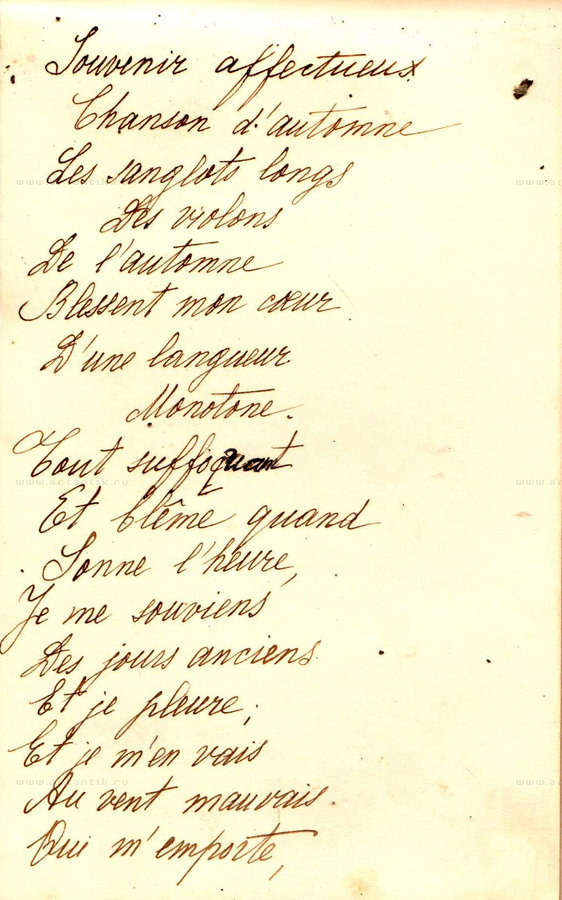 Souvenir affectueux
Chanson d'automne
Les sanglots longs
Des violons
De l'automne
Blessent mon cœur
D'une langueur
Monotone.
Tout suffoquant
Et blême quand
Sonne l'heure,
Je me souviens
Des jours anciens
Et je pleure;
Et je m'en vais
Au vent mauvais
Qui m'emporte,
www.artantik.ru